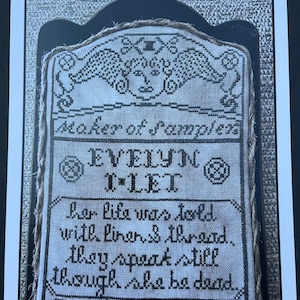 I
Maker of Samplers
EVELYN
I•LET
her life was told
with linen & thread,
they speak still
though she be dead.